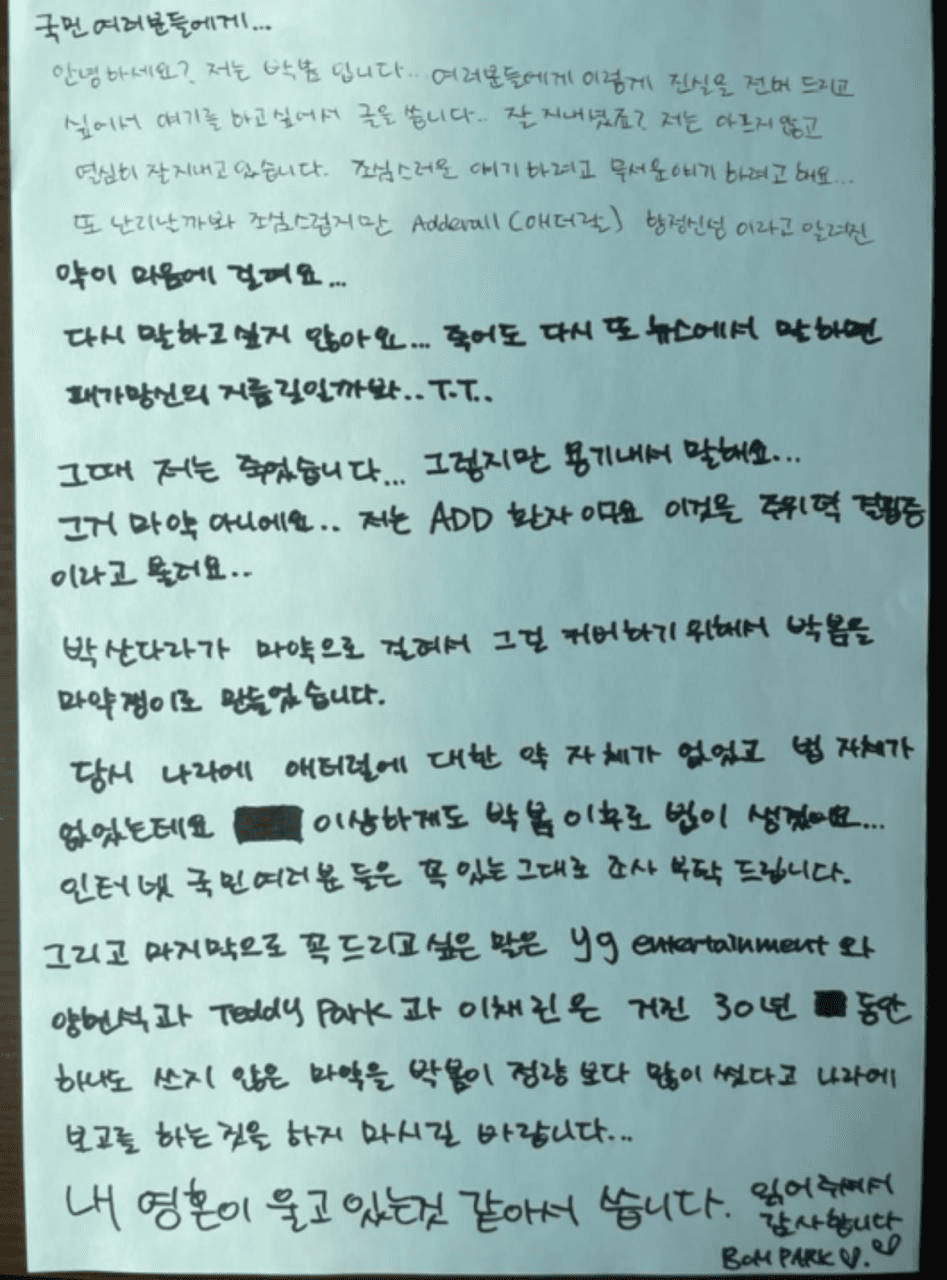 국민 여러분들에게...
안녕하세요? 저는 박봄 입니다... 여러분들에게 이렇게 진실을 전해 드리고
싶어서 얘기를 하고싶어서 글을 씁니다.. 잘 지내셨죠? 저는 아프지 않고
열심히 잘지내고 있습니다. 조심스러운 얘기 하려고 무서운얘기 하려고 해요...
또 난리날까봐 조심스럽지만 Adderall (애더랄) 향정신성 이라고 알려진
약이 마음에 걸려요...
다시 말하고싶지 않아요... 죽어도 다시 또 뉴스에서 말하면
패가망신의 지름길일까봐.. T.T..
그때 저는 죽었습니다... 그렇지만 용기내서 말해요...
그거 마약 아니에요.. 저는 ADD 환자 이구요 이것을 주위력 결핍증
이라고 불러요..
박산다라가 마약으로 걸려서 그걸 커버하기위해서 박봄을
마약쟁이로 만들었습니다.
당시 나라에 애터럴에 대한 약 자체가 없었고 법 자체가
없었는데요 이상하게도 박봄 이후로 법이 생겼어요...
인터넷 국민여러분 들은 꼭 있는그대로 조사 부탁 드립니다.
그리고 마지막으로 꼭드리고싶은 말은 yg entertainment와
양현석과 Teddy Park과 이채린은 거진 30년 동안
하나도 쓰지 않은 마약을 박봄이 정량 보다 많이 썼다고 나라에
보고를 하는것을 하지 마시길 바랍니다...
내 영혼이 울고 있는것 같아서 씁니다. 읽어주셔서
감사합니다
BOM PARK ♡. ♡